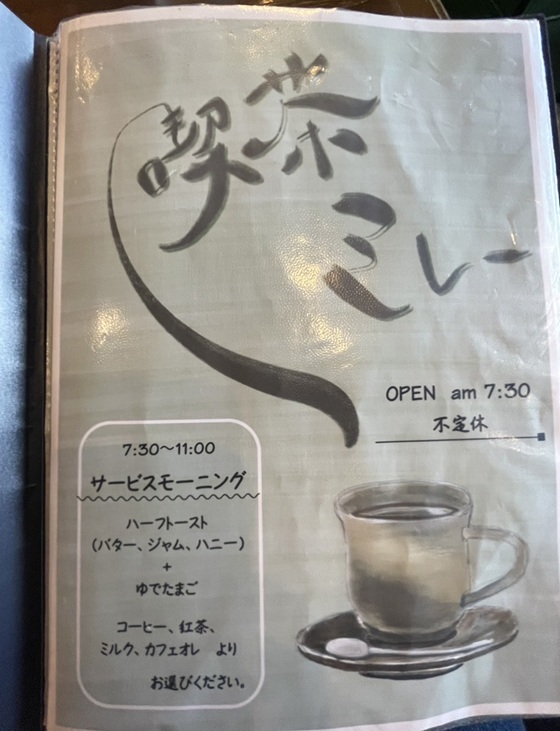 喫茶
ミレー
OPEN am 7:30
不定休
7:30〜11:00
サービスモーニング
ハーフトースト
(バター、ジャム、ハニー)
+
ゆでたまご
コーヒー、紅茶、
ミルク、カフェオレ より
お選びください。